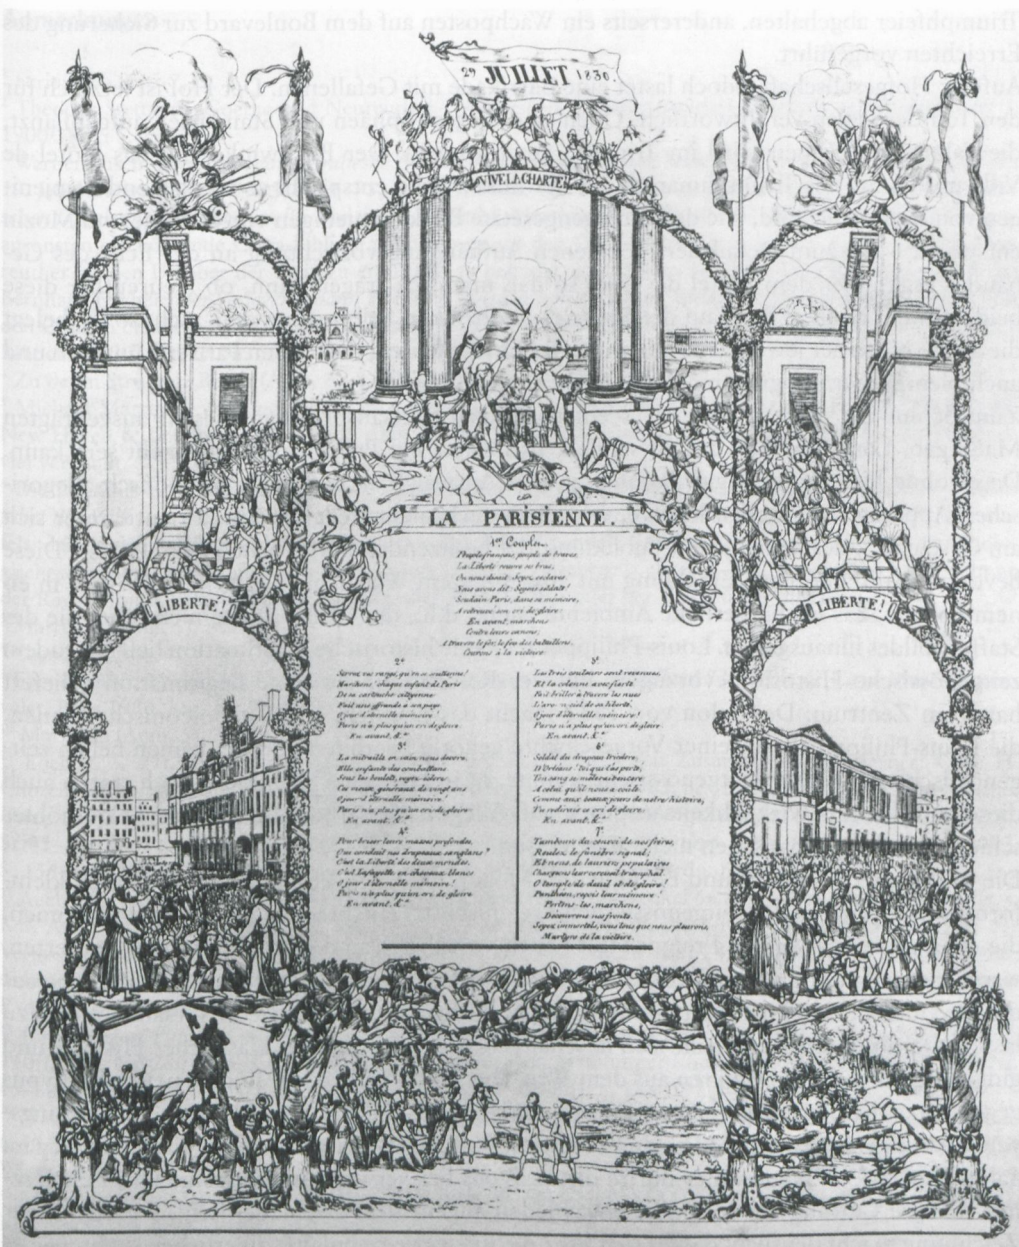 29 JUILLET 1830
VIVE LA CHARTE
LA PARISIENNE.
LIBERTÉ!
LIBERTÉ!
1er Couplet.
Peuple français, peuple de braves,
La Liberté rouvre ses bras;
On nous disait: soyez esclaves
Nous avons dit: Soyons soldats!
Soudain Paris, dans sa mémoire,
A retrouvé son cri de gloire:
En avant, marchons
Contre leurs canons;
Courons à la victoire.
2e
Serrez vos rangs, qu'on se soutienne!
Marchons! chaque enfant de Paris
De sa cartouche citoyenne
Fait une offrande à son pays
O jour d'éternelle mémoire!
Paris n'a plus qu'un cri de gloire:
En avant, &a
3e
La mitraille en vain nous dévore,
Elle enfante des combattans
Sous les boulets, voyez éclore
Ces vieux généraux de vingt ans
O jour d'éternelle mémoire!
Paris n'a plus qu'un cri de gloire:
En avant, &a
4e
Pour briser leurs masses profondes,
Qui conduit nos drapeaux sanglans?
C'est la Liberté des deux mondes,
C'est Lafayette en cheveux blancs
O jour d'éternelle mémoire!
Paris n'a plus qu'un cri de gloire
En avant, &a
5e
Les trois couleurs sont revenues
Et la colonne avec fierté
Fait briller à travers les nues
L'arc-en-ciel de sa liberté.
O jour d'éternelle mémoire!
Paris n'a plus qu'un cri de gloire
En avant, &a
Soldat du drapeau tricolore,
D'Orléans! toi qui l'as porté,
Ton sang se mêlerait encore
A celui qu'il nous a coûté.
Comme aux beaux jours de notre histoire,
Tu redirais ce cri de gloire:
En avant, &a
7e
Tambours du convoi de nos frères,
Roulez le funèbre signal,
Et nous de lauriers populaires
Chargeons leur cercueil triomphal.
O temple de deuil et de gloire!
Panthéon, reçois leur mémoire!
Portons-les, marchons,
Découvrons nos fronts
Soyez immortels, vous tous que nous pleurons,
Martyrs de la victoire.